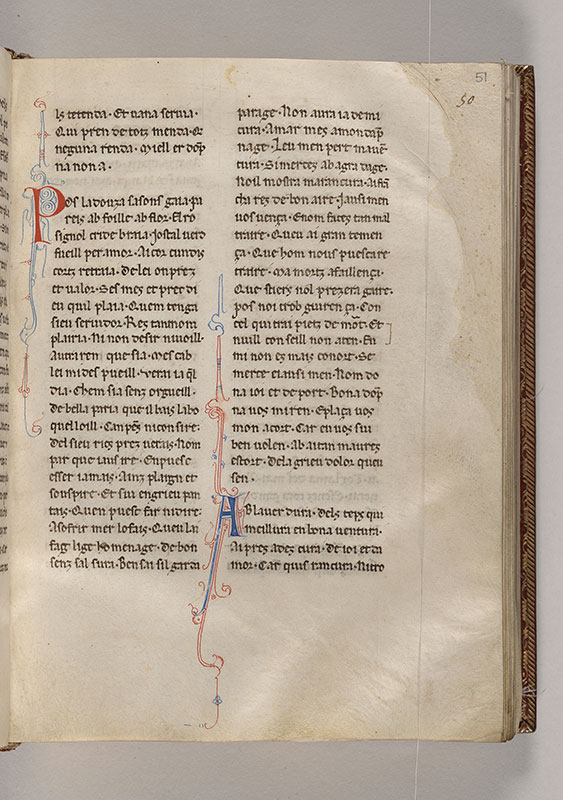 51
50
lz tetenda · Et uana seruia ·
Qui pren de totz menda · Q
neguna renda · Miell er dop̃
na non a ·
Pos la douza sasons gaia · Pa
reis ab foille ab flor · El ro
signol cride braia · Jostal uerd
fueill per amor ·
cortz retraia · De lei on prez
et ualor · Ses mes et pres di
eu quil plaia · Quem tenga
sieu seruidor · Res tan nom
plairia · Ni non desir nuoill ·
Autra ren que sia · Mes cab
lei mi des pueill · Verai la q̃l
dia · Chem sia senz orgueill ·
de bella paria que il bais labo
quel loill ·
Del sieu ric prez uerais · Nom
par que iauzire · En puesc
esser iamais · Ainz plaign et
souspire · Et sui en grieu pan
tais · Quen puesc far ni dire ·
A sofrir mer lo fais · Queu la
fag lige homenage · De bon
senz sal sura · Ben sai sil garda
parage · Non aura ia de mi
cura · Amar mes a mon dap̃
nage · Leu men pert mauẽ
tura · Si merces ab agradage ·
Noil mostra maran cura ·
cha res de bon aire · Iausi men
uos uenza · Enom faitz tan mal
traire · Queu ai gran temen
ça · Que hom nous puescare
traire · Ma mortz a faillença ·
Que sters nol prezera gaire ·
Pos noi trob guirença · Con
cel qui trai pietz de mõt · Et
nuill conseill non aten · En
mi non ez mais conort · Se
merce el ausi men · Nom do
na ioi et deport · Bona dop̃
na uos miren · E plaça uos
mon acort · Car eu uos sui
ben uolen · Ab aitan maurez
estort · De la grieu dolor queu
sen ·
Ab lauer dura · Dels teps qui
meillura en bona uentura ·
Ai pres adez cura · De ioi et da
mor · Car quis rancura · Ni tro